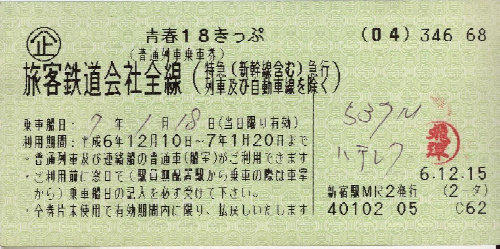 企 青春18きっぷ (04) 346 68
(普通列車乗車券)
旅客鉄道会社全線(特急(新幹線含む)急行列車及び自動車線を除く)
乗車船日: 7年 1月 18日(当日限り有効)
利用期間:平成6年12月10日~7年1月20日まで
・普通列車及び連絡船の普通車(船室)がご利用できます
・ご利用前に窓口で(駅員無配置駅から乗車の際は車掌
から)乗車船日の記入を必ず受けて下さい。
・全券片未使用で有効期間内に限り、払戻しいたします
537M
6.12.15
新宿駅MR2発行 (2-タ)
40102 05 C62